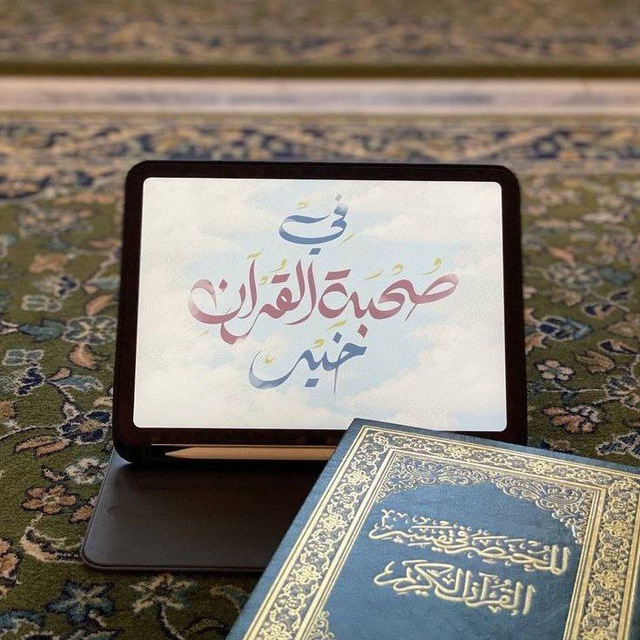 في
صُحْبَة القُرآن
خَيْر
المختصر في تفسير
القرآن الكريم